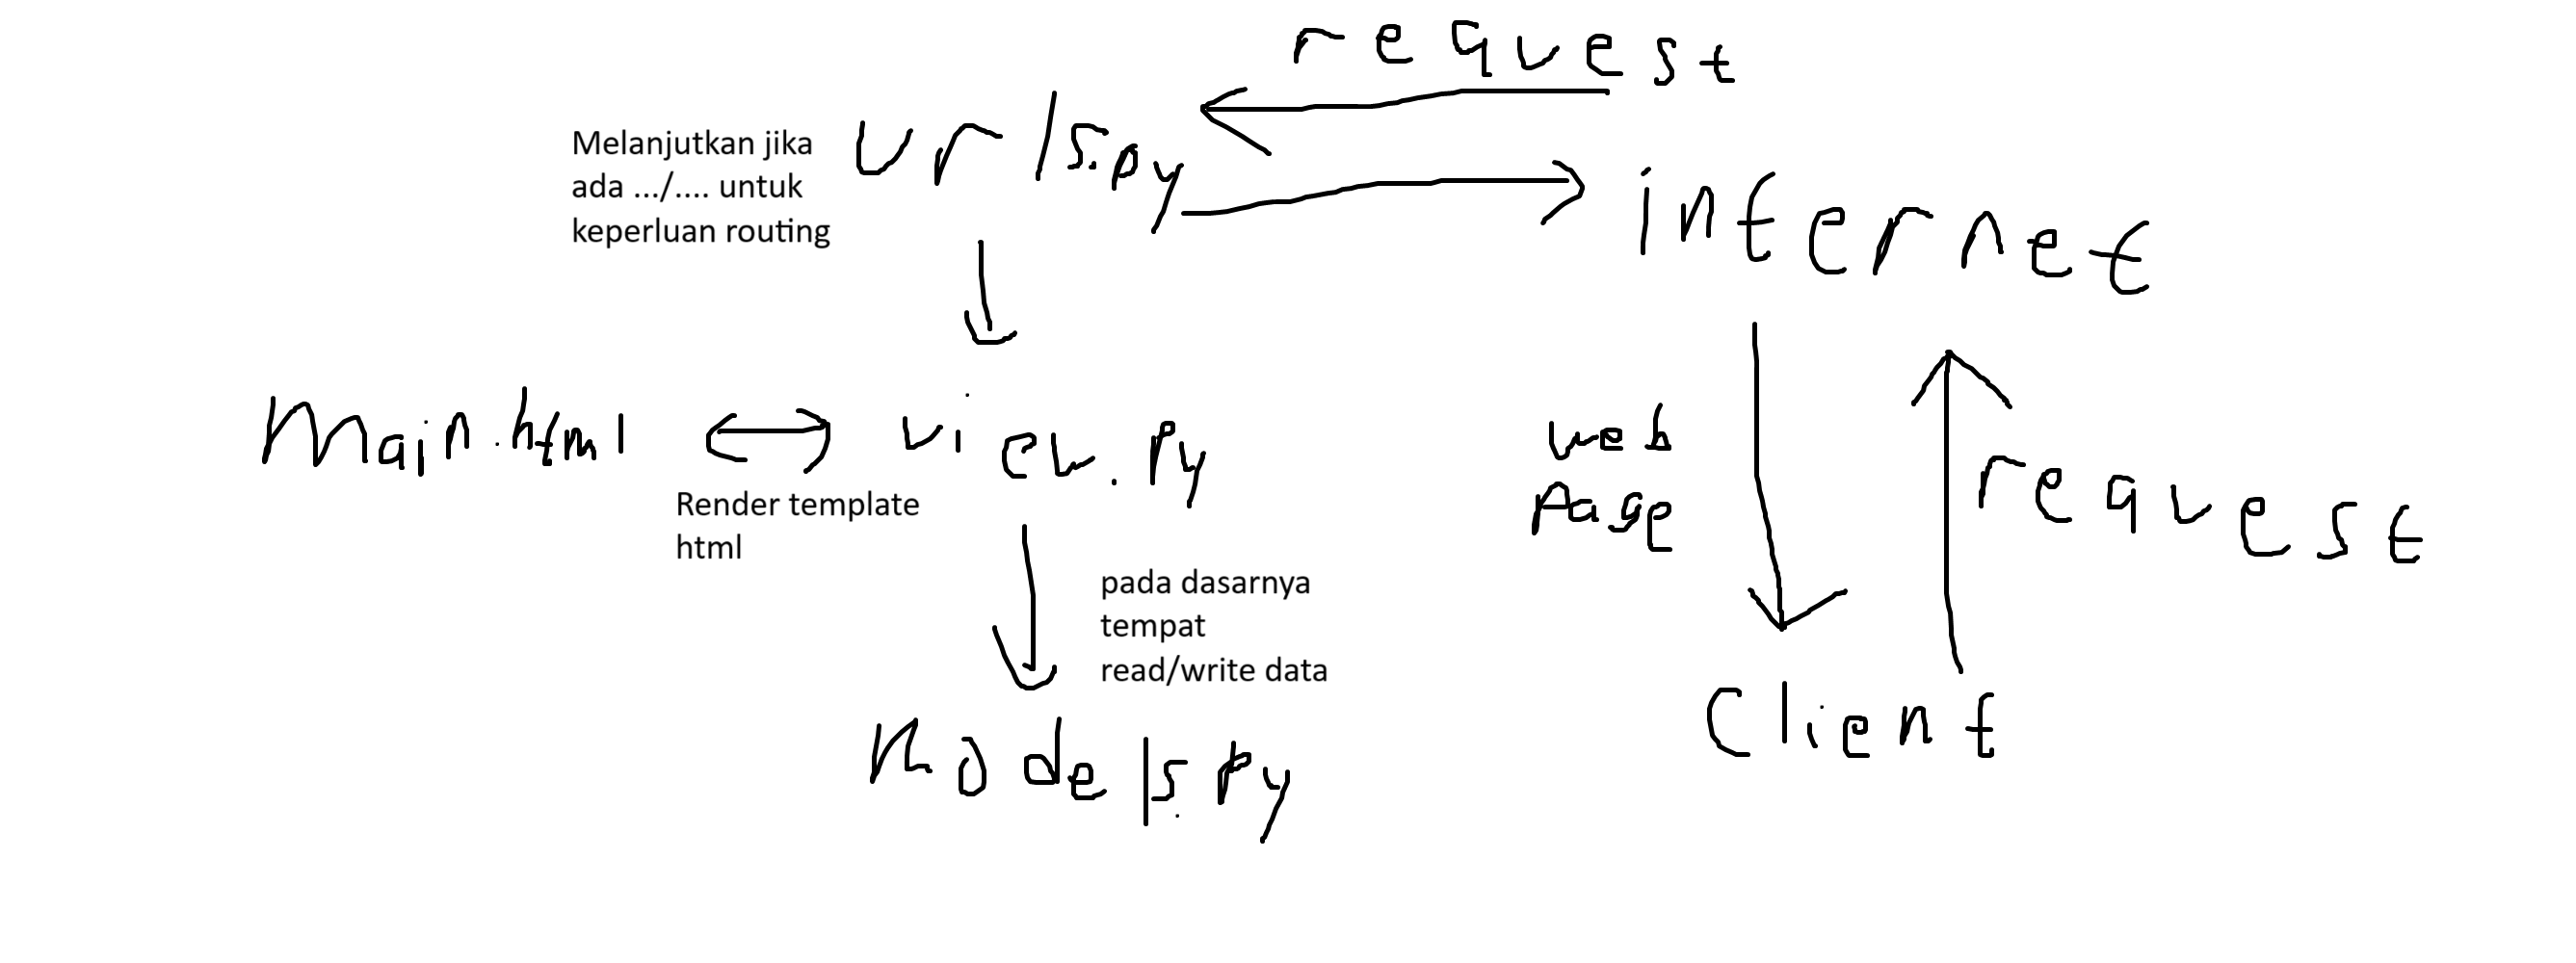 request
urls.py
Melanjutkan jika
ada .../.... untuk
keperluan routing
internet
Main.html
view.py
Render template
html
web
page
request
pada dasarnya
tempat
read/write data
Models.py
Client